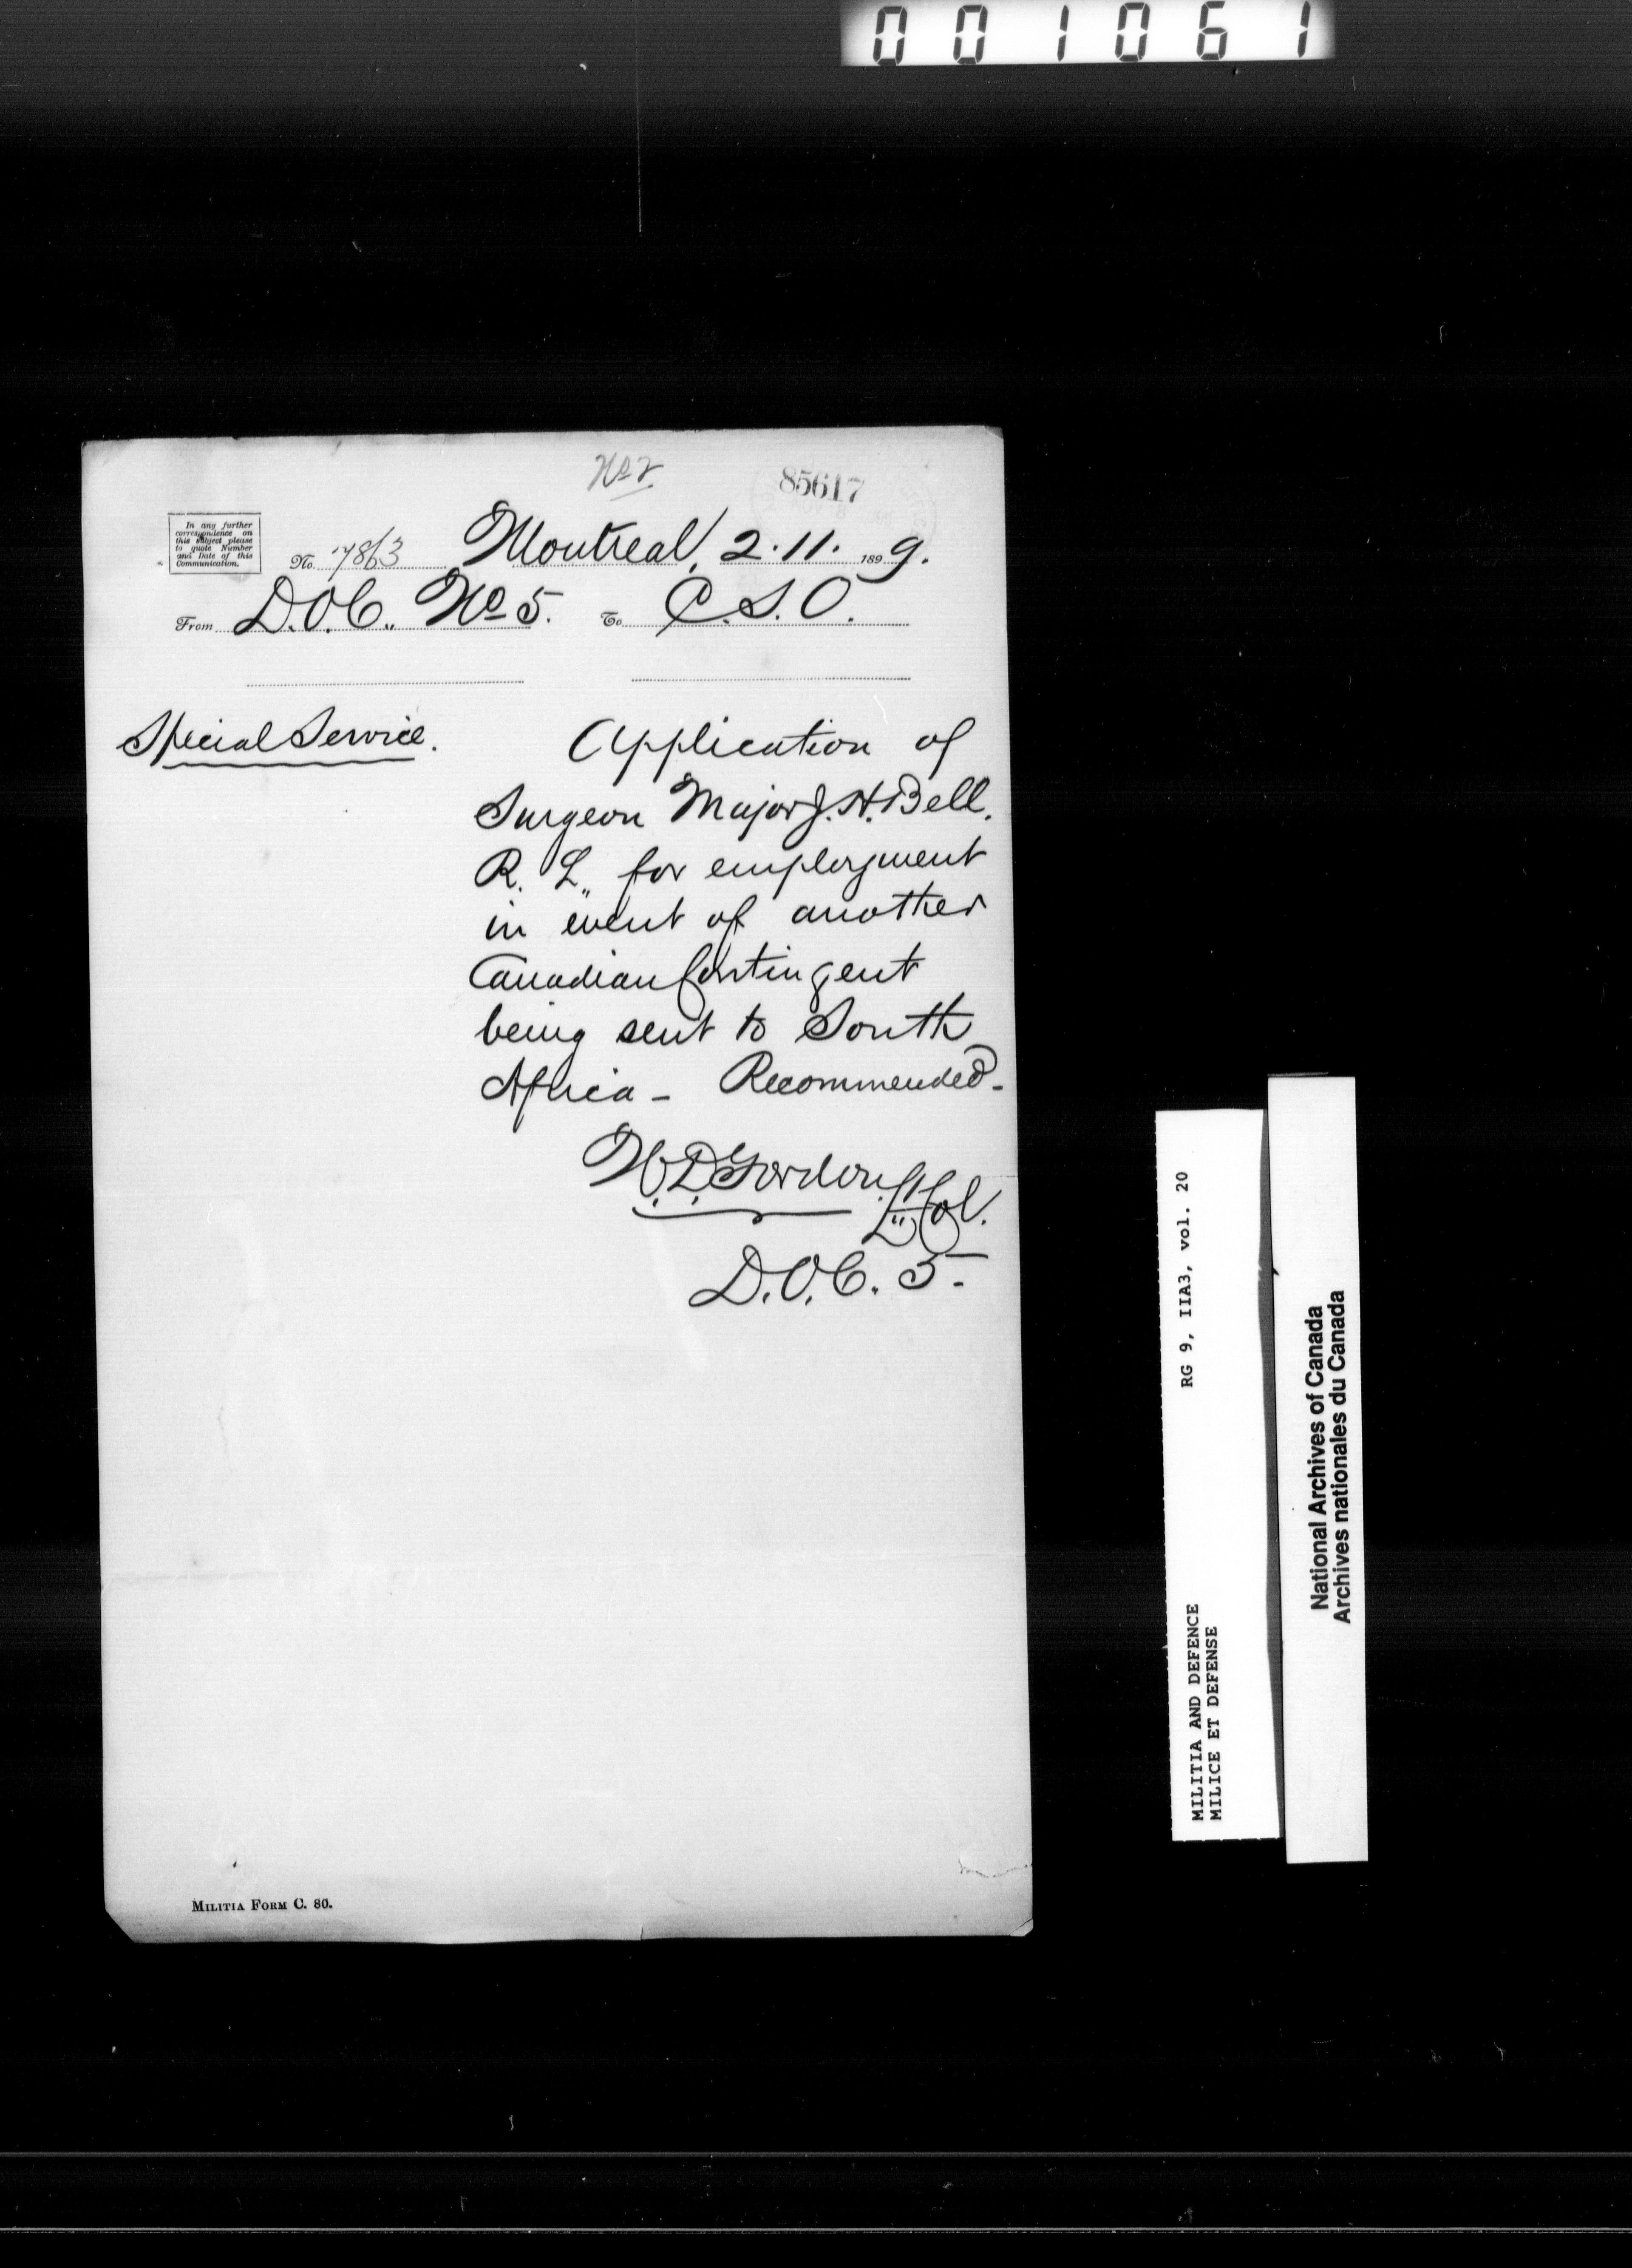 001061
No 2
85617
In any further
correspondence on
this subject please
to quote Number
and Date of this
Communication.
No. 7863 Montreal, 2.11. 1899.
From D.O.C., No 5. To C.S.O.
Special Service.
Application of
Surgeon Major J. H. Bell.
R. L,, for employment
in event of another
Canadian Contingent
being sent to South
Africa - Recommended -
W. D. Gordon, Lt Col.
D.O.C. 5 -
MILITIA FORM C. 80.
RG 9, IIA3, vol. 20
MILITIA AND DEFENCE
MILICE ET DEFENSE
National Archives of Canada
Archives nationales du Canada